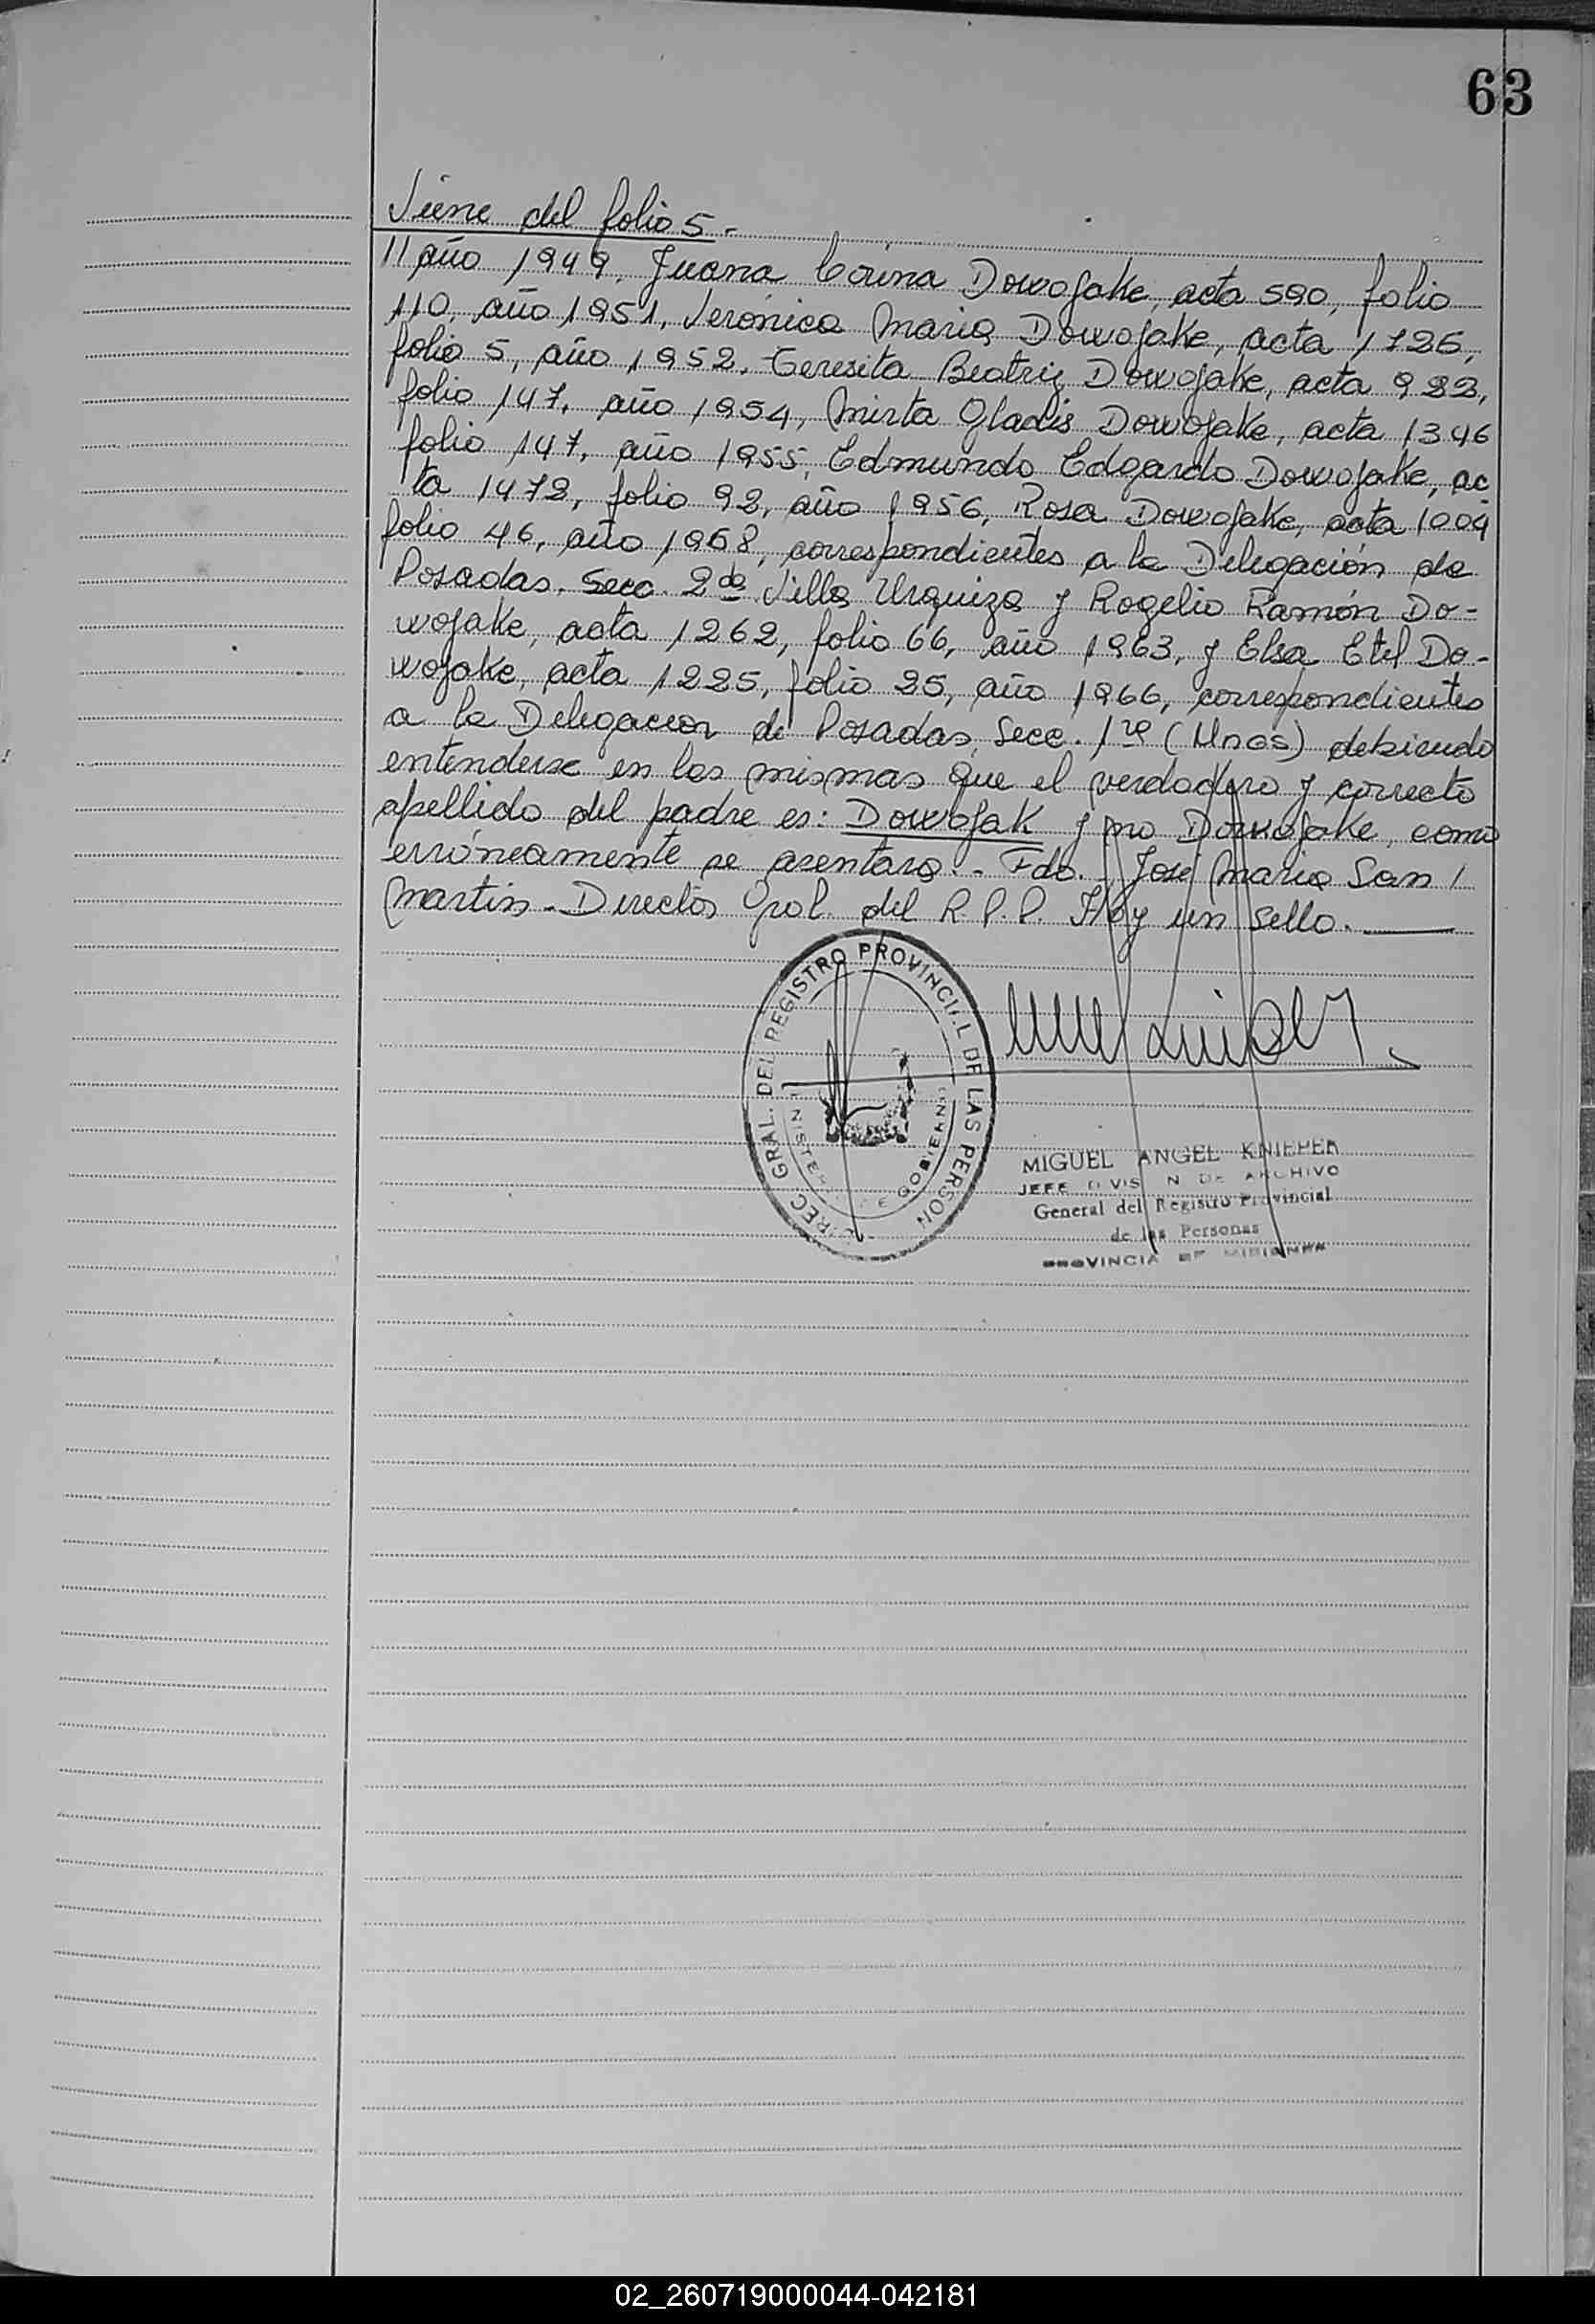 63
Viene del folio 5.-
11 año 1949, Juana Corina Dowojake, acta 590, folio
110, año 1951, Verónica Maria Dowojake, acta 1726,
folio 5, año 1952, Teresita Beatriz Dowojake, acta 922,
folio 147, año 1954, Mirta Gladis Dowojake, acta 1346
folio 147, año 1955, Edmundo Edgardo Dowojake, ac
ta 1472, folio 92, año 1956, Rosa Dowojake, acta 1004
folio 46, año 1958, correspondientes a la Delegación de
Posadas, Secc. 2da Villa Urquiza y Rogelio Ramón Do-
wojake, acta 1262, folio 66, año 1963, y Elsa Etel Do-
wojake, acta 1225, folio 25, año 1966, correspondientes
a la Delegacion de Posadas, Secc. 1ra (Unos) debiendo
entenderse en las mismas que el verdadero y correcto
apellido del padre es: Dowojak y no Dowojake, como
erróneamente se asentara.- Fdo. José Maria San
Martin - Director Gral. del R.P.P. Hay un sello.
DIREC. GRAL. DEL REGISTRO PROVINCIAL DE LAS PERSON
MINISTERIO DE GOBIERNO
MIGUEL ANGEL KNIEPER
JEFE DIVISION DE ARCHIVO
General del Registro Provincial
de las Personas
PROVINCIA DE MISIONES
02_260719000044-042181